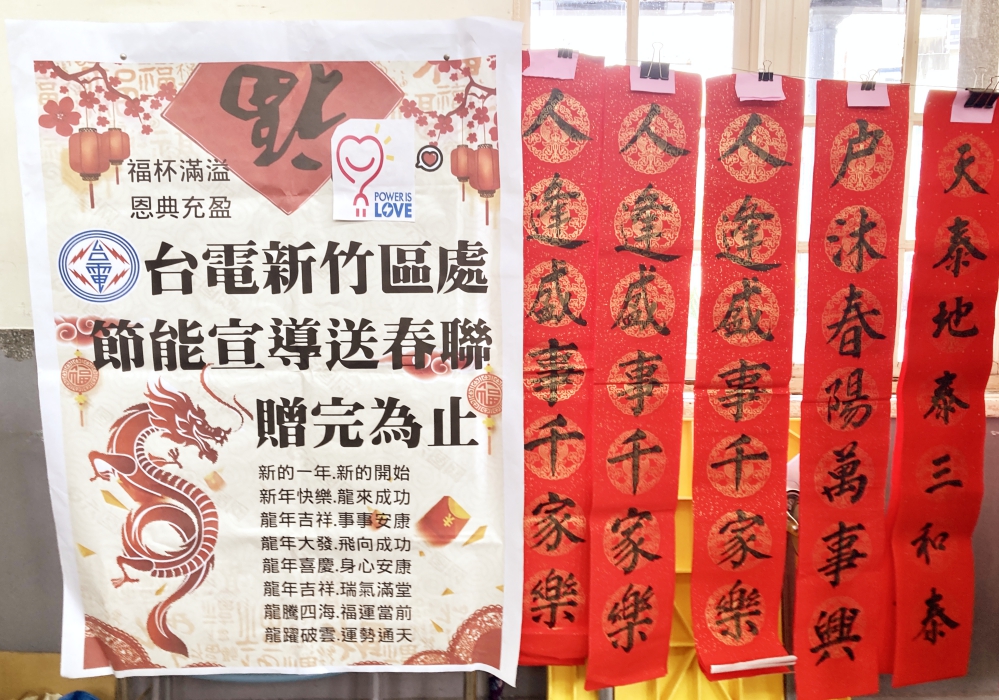 福
福杯滿溢
恩典充盈
POWER IS
LOVE
台電
台電新竹區處
節能宣導送春聯
贈完為止
新的一年.新的開始
新年快樂.龍來成功
龍年吉祥.事事安康
龍年大發.飛向成功
龍年喜慶.身心安康
龍年吉祥.瑞氣滿堂
龍騰四海.福運當前
龍躍破雲.運勢通天
福
福
人逢盛事千家樂
人逢盛事千家樂
人逢盛事千家樂
戶沐春陽萬事興
天泰地泰三和泰